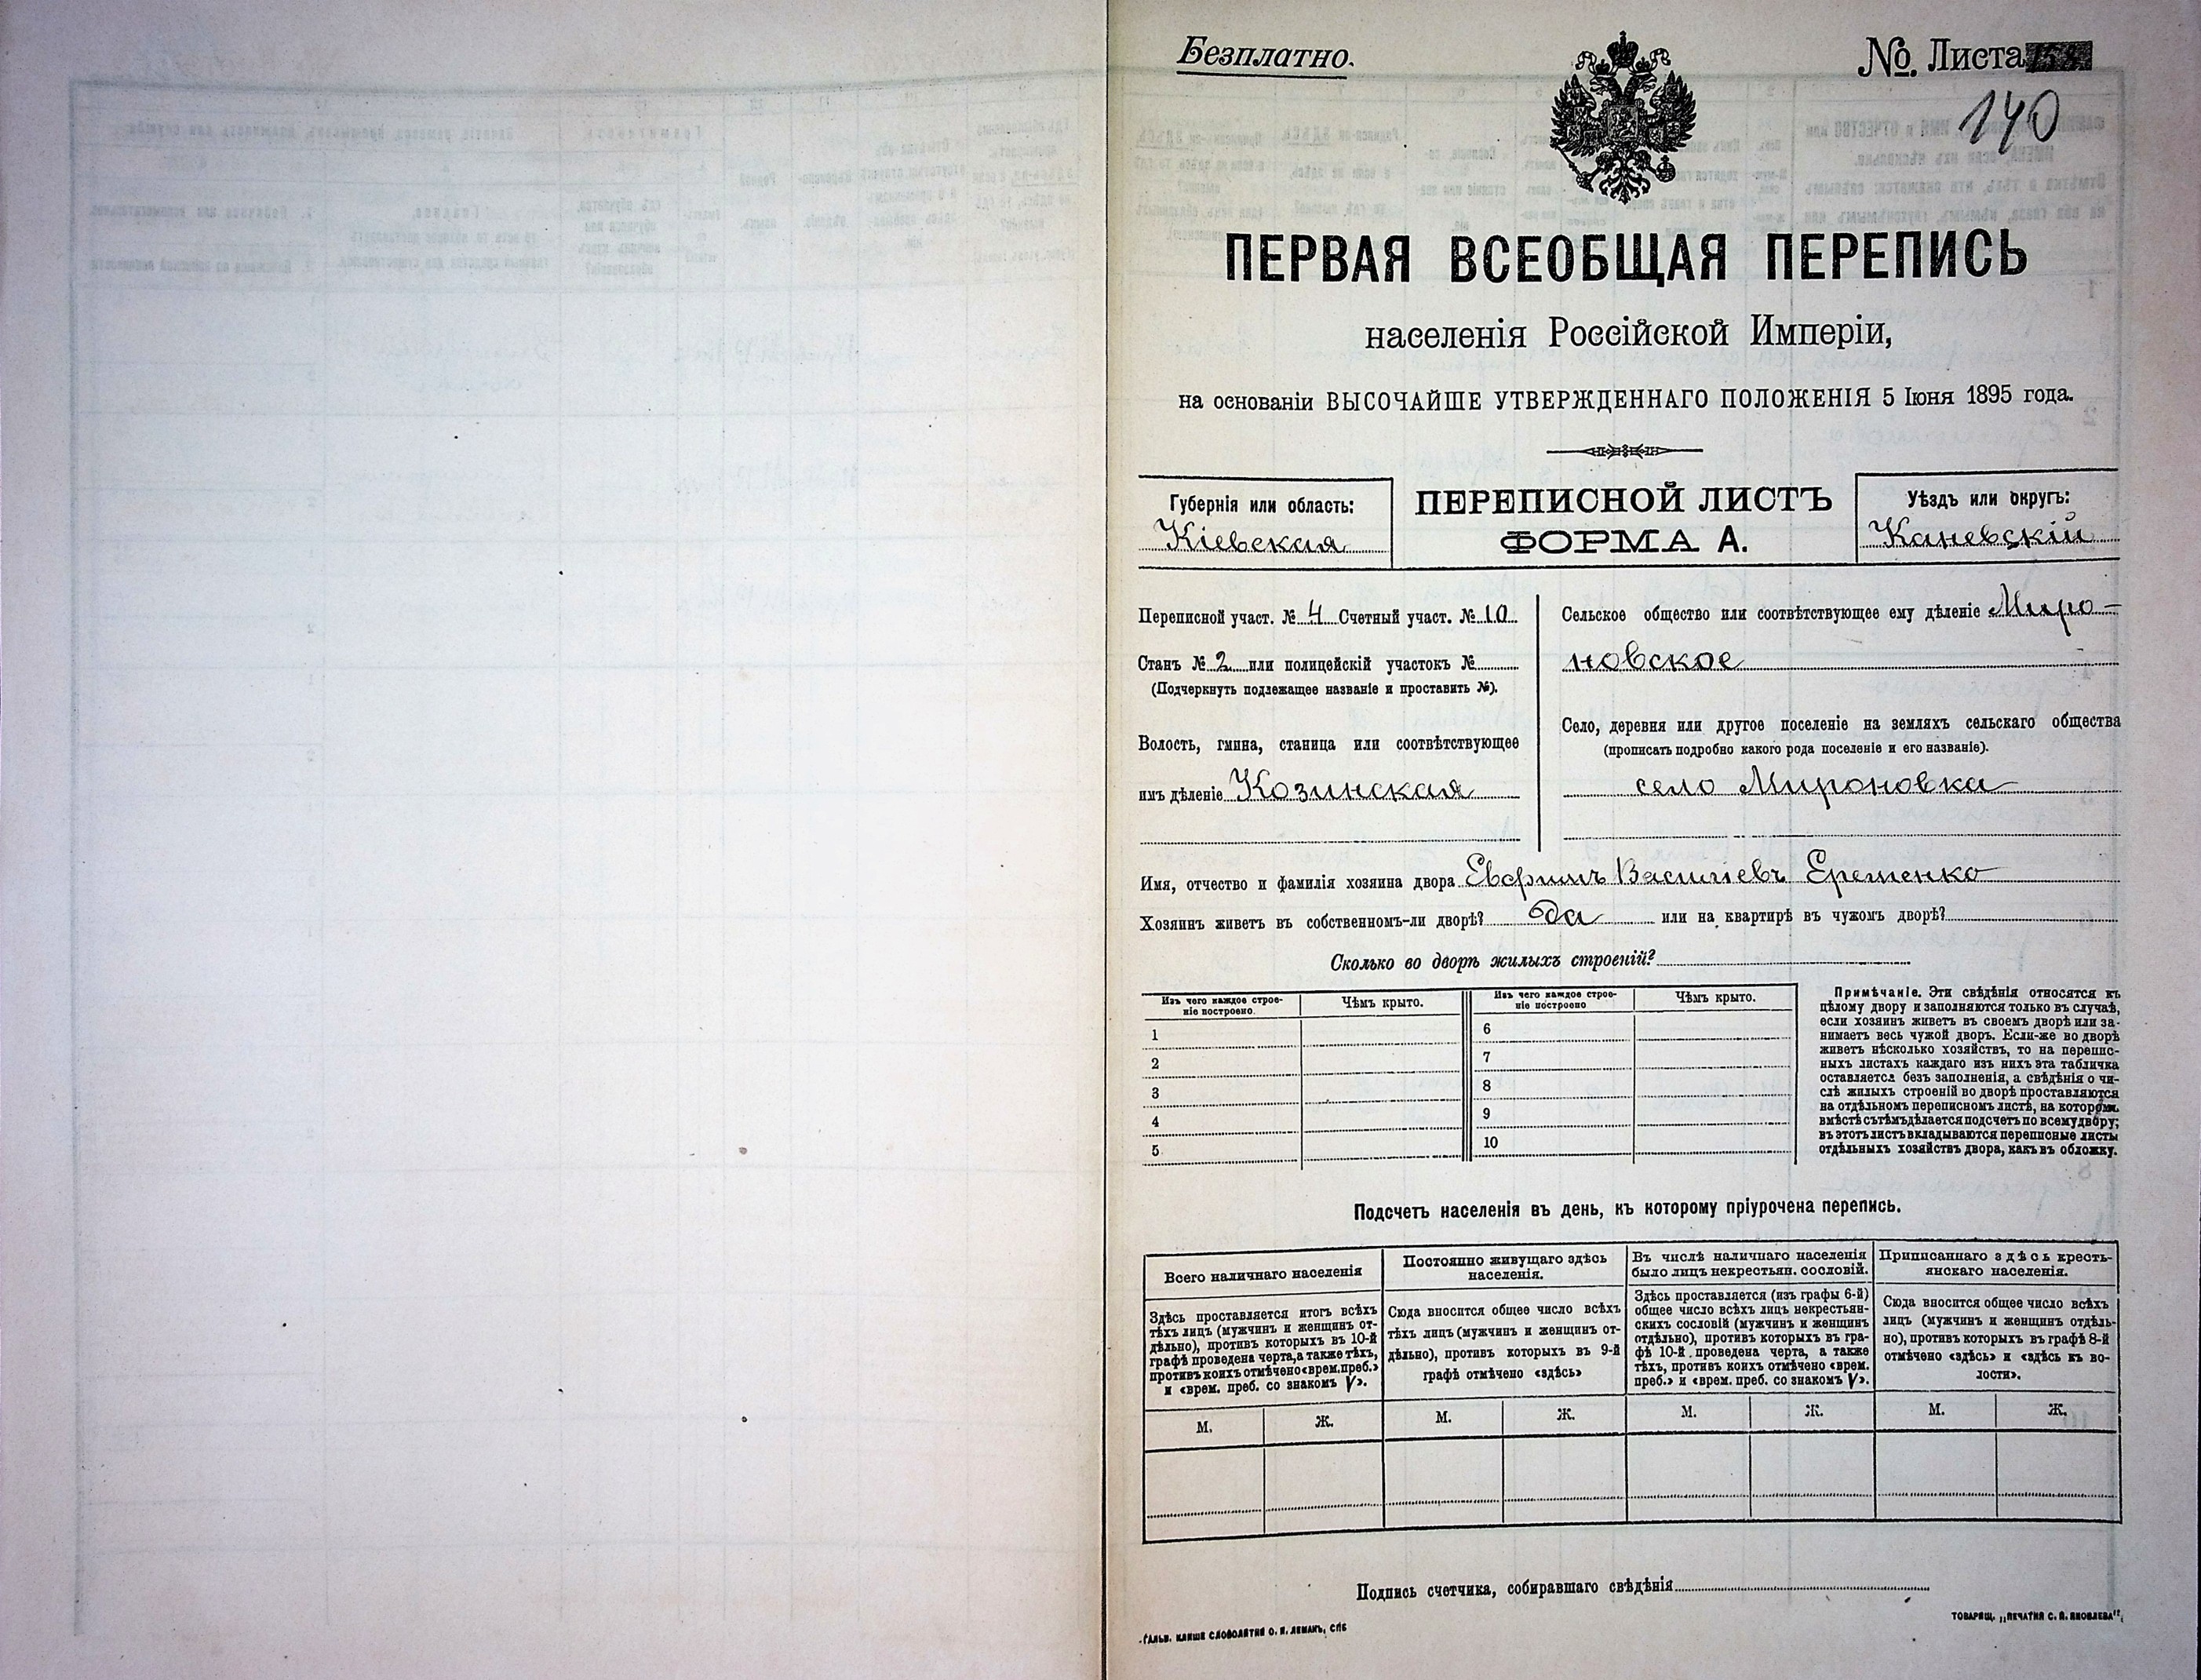 Безплатно.
№ Листа 158
140
ПЕРВАЯ ВСЕОБЩАЯ ПЕРЕПИСЬ
населенія Россійской Имперіи,
на основаніи ВЫСОЧАЙШЕ УТВЕРЖДЕННАГО ПОЛОЖЕНІЯ 5 Іюня 1895 года.
Губернія или область:
Кіевская
ПЕРЕПИСНОЙ ЛИСТЪ
ФОРМА А.
Уѣздъ или округъ:
Каневскій
Переписной участ. № 4 Счетный участ. № 10
Станъ № 2 или полицейскій участокъ №
(Подчеркнуть подлежащее названіе и проставить №).
Волость, гмина, станица или соотвѣтствующее
имъ дѣленіе Козинская
Сельское общество или соотвѣтствующее ему дѣленіе Миро-
новское
Село, деревня или другое поселеніе на земляхъ сельскаго общества
(прописать подробно какого рода поселеніе и его названіе).
село Мироновка
Имя, отчество и фамилія хозяина двора Васильевъ
Хозяинъ живетъ въ собственномъ-ли дворѣ? да или на квартирѣ въ чужомъ дворѣ?
Сколько во дворѣ жилыхъ строеній?
Изъ чего каждое строе-
ніе построено.
Чѣмъ крыто.
Изъ чего каждое строе-
ніе построено
Чѣмъ крыто.
1
6
2
7
3
8
4
9
5
10
Примѣчаніе. Эти свѣдѣнія относятся къ
цѣлому двору и заполняются только въ случаѣ,
если хозяинъ живетъ въ своемъ дворѣ или за-
нимаетъ весь чужой дворъ. Если-же во дворѣ
живетъ нѣсколько хозяйствъ, то на перепис-
ныхъ листахъ каждаго изъ нихъ эта табличка
оставляется безъ заполненія, а свѣдѣнія о чи-
слѣ жилыхъ строеній во дворѣ проставляются
на отдѣльномъ переписномъ листѣ, на которомъ
вмѣстѣ съ тѣмъ дѣлается подсчетъ по всему двору;
въ этотъ листъ вкладываются переписные листы
отдѣльныхъ хозяйствъ двора, какъ въ обложку.
Подсчетъ населенія въ день, къ которому пріурочена перепись.
Всего наличнаго населенія
Здѣсь проставляется итогъ всѣхъ
тѣхъ лицъ (мужчинъ и женщинъ от-
дѣльно), противъ которыхъ въ 10-й
графѣ проведена черта, а также тѣхъ,
противъ коихъ отмѣчено «врем. преб.»
и «врем. преб. со знакомъ V».
Постоянно живущаго здѣсь
населенія.
Сюда вносится общее число всѣхъ
тѣхъ лицъ (мужчинъ и женщинъ от-
дѣльно), противъ которыхъ въ 9-й
графѣ отмѣчено «здѣсь»
Въ числѣ наличнаго населенія
было лицъ некрестьян. сословій.
Здѣсь проставляется (изъ графы 6-й)
общее число всѣхъ лицъ некрестьян-
скихъ сословій (мужчинъ и женщинъ
отдѣльно), противъ которыхъ въ гра-
фѣ 10-й проведена черта, а также
тѣхъ, противъ коихъ отмѣчено «врем.
преб.» и «врем. преб. со знакомъ V».
Приписаннаго здѣсь кресть-
янскаго населенія.
Сюда вносится общее число всѣхъ
лицъ (мужчинъ и женщинъ отдѣль-
но), противъ которыхъ въ графѣ 8-й
отмѣчено «здѣсь» и «здѣсь къ во-
лости».
М. Ж. М. Ж. М. Ж. М. Ж.
Подпись счетчика, собиравшаго свѣдѣнія
ГАЛЬВ. КЛИШЕ СЛОВОЛИТНИ О. И. ЛЕМАНЪ, СПБ
ТОВАРИЩ. „ПЕЧАТНЯ С. П. ЯКОВЛЕВА“